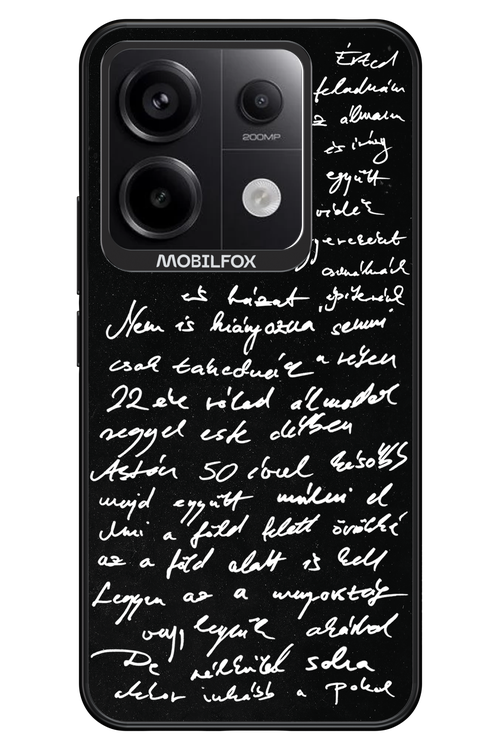 200MP
MOBILFOX
Érted
feladnám
az álmaim
és így
együtt
vidék
gyerekeket
csinálnánk
és házat építenénk
Nem is hiányozna semmi
csak takednék a
22 éve rólad álmodok
reggel este délben
Aztán 50 évvel később
majd együtt múlni el
Ami a föld felett örökké
az a föld alatt is kell
Legyen az a mennyország
vagy legyünk akárhol
De nélküled soha
akkor inkább a Pokol